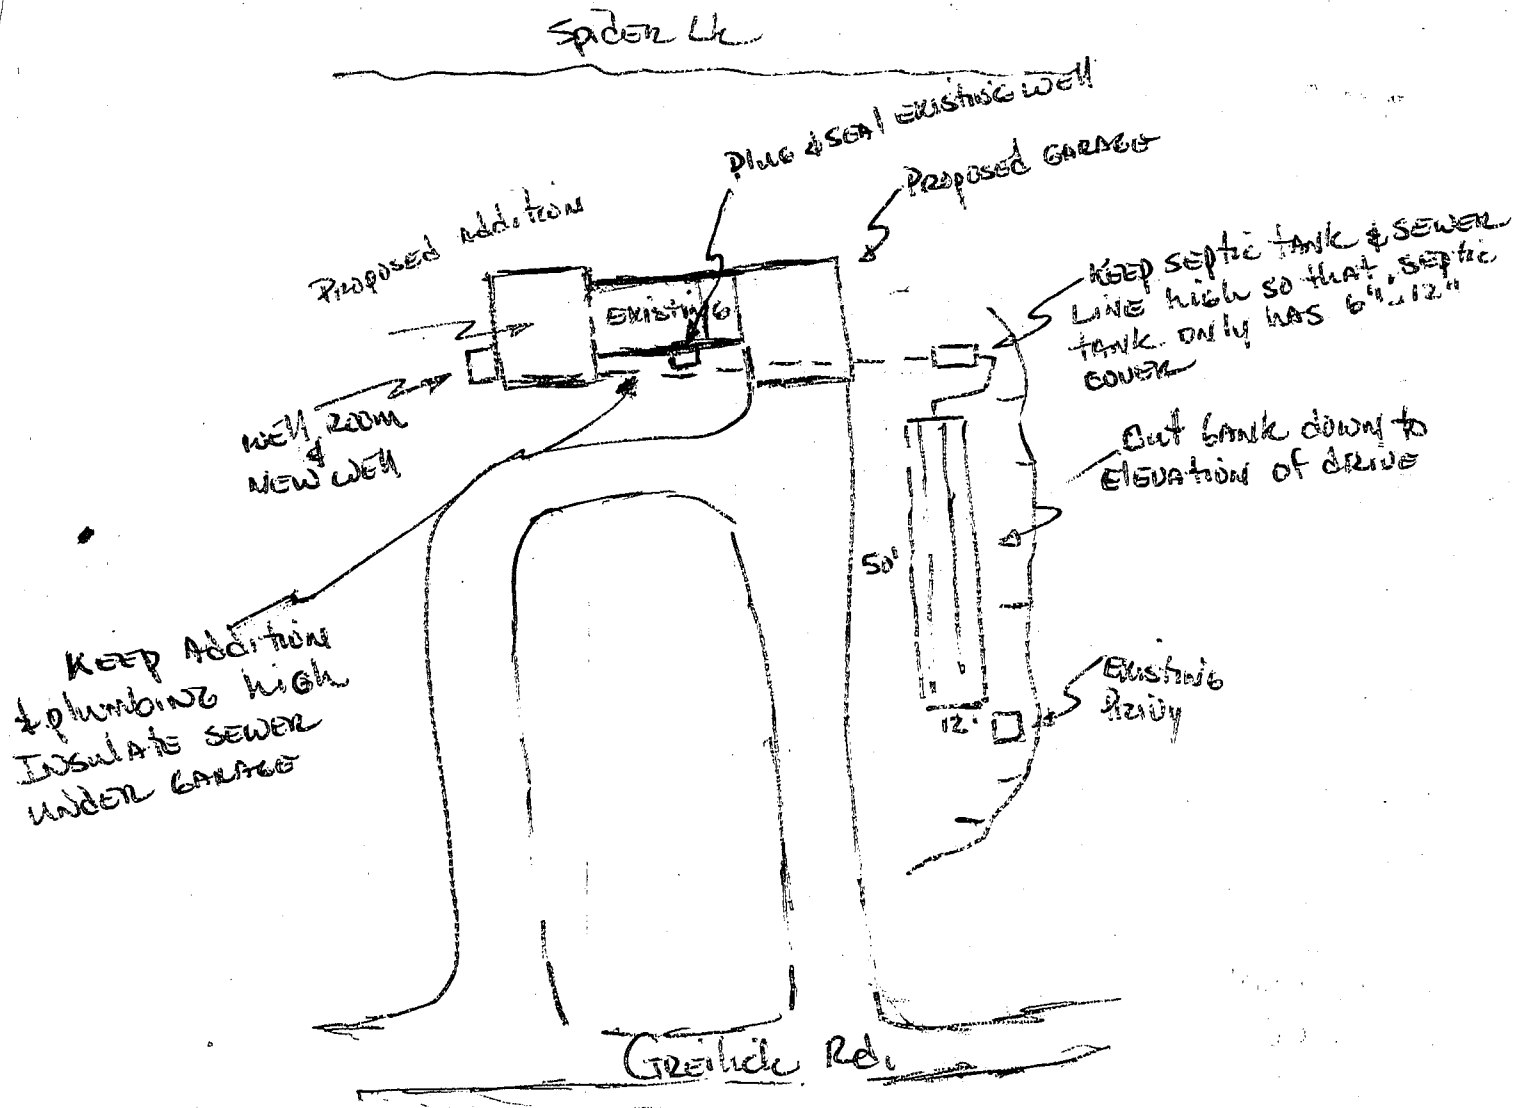 Spider Lk
Plug & Seal Existing Well
Proposed Garage
Proposed Addition
Existing
Keep Septic Tank & Sewer
Line high so that septic
tank only has 6"-12"
cover
Well Room
&
New Well
Cut bank down to
Elevation of drive
50'
Keep Addition
& plumbing high
Insulate Sewer
Under Garage
Existing
Privy
12'
Greilick Rd.